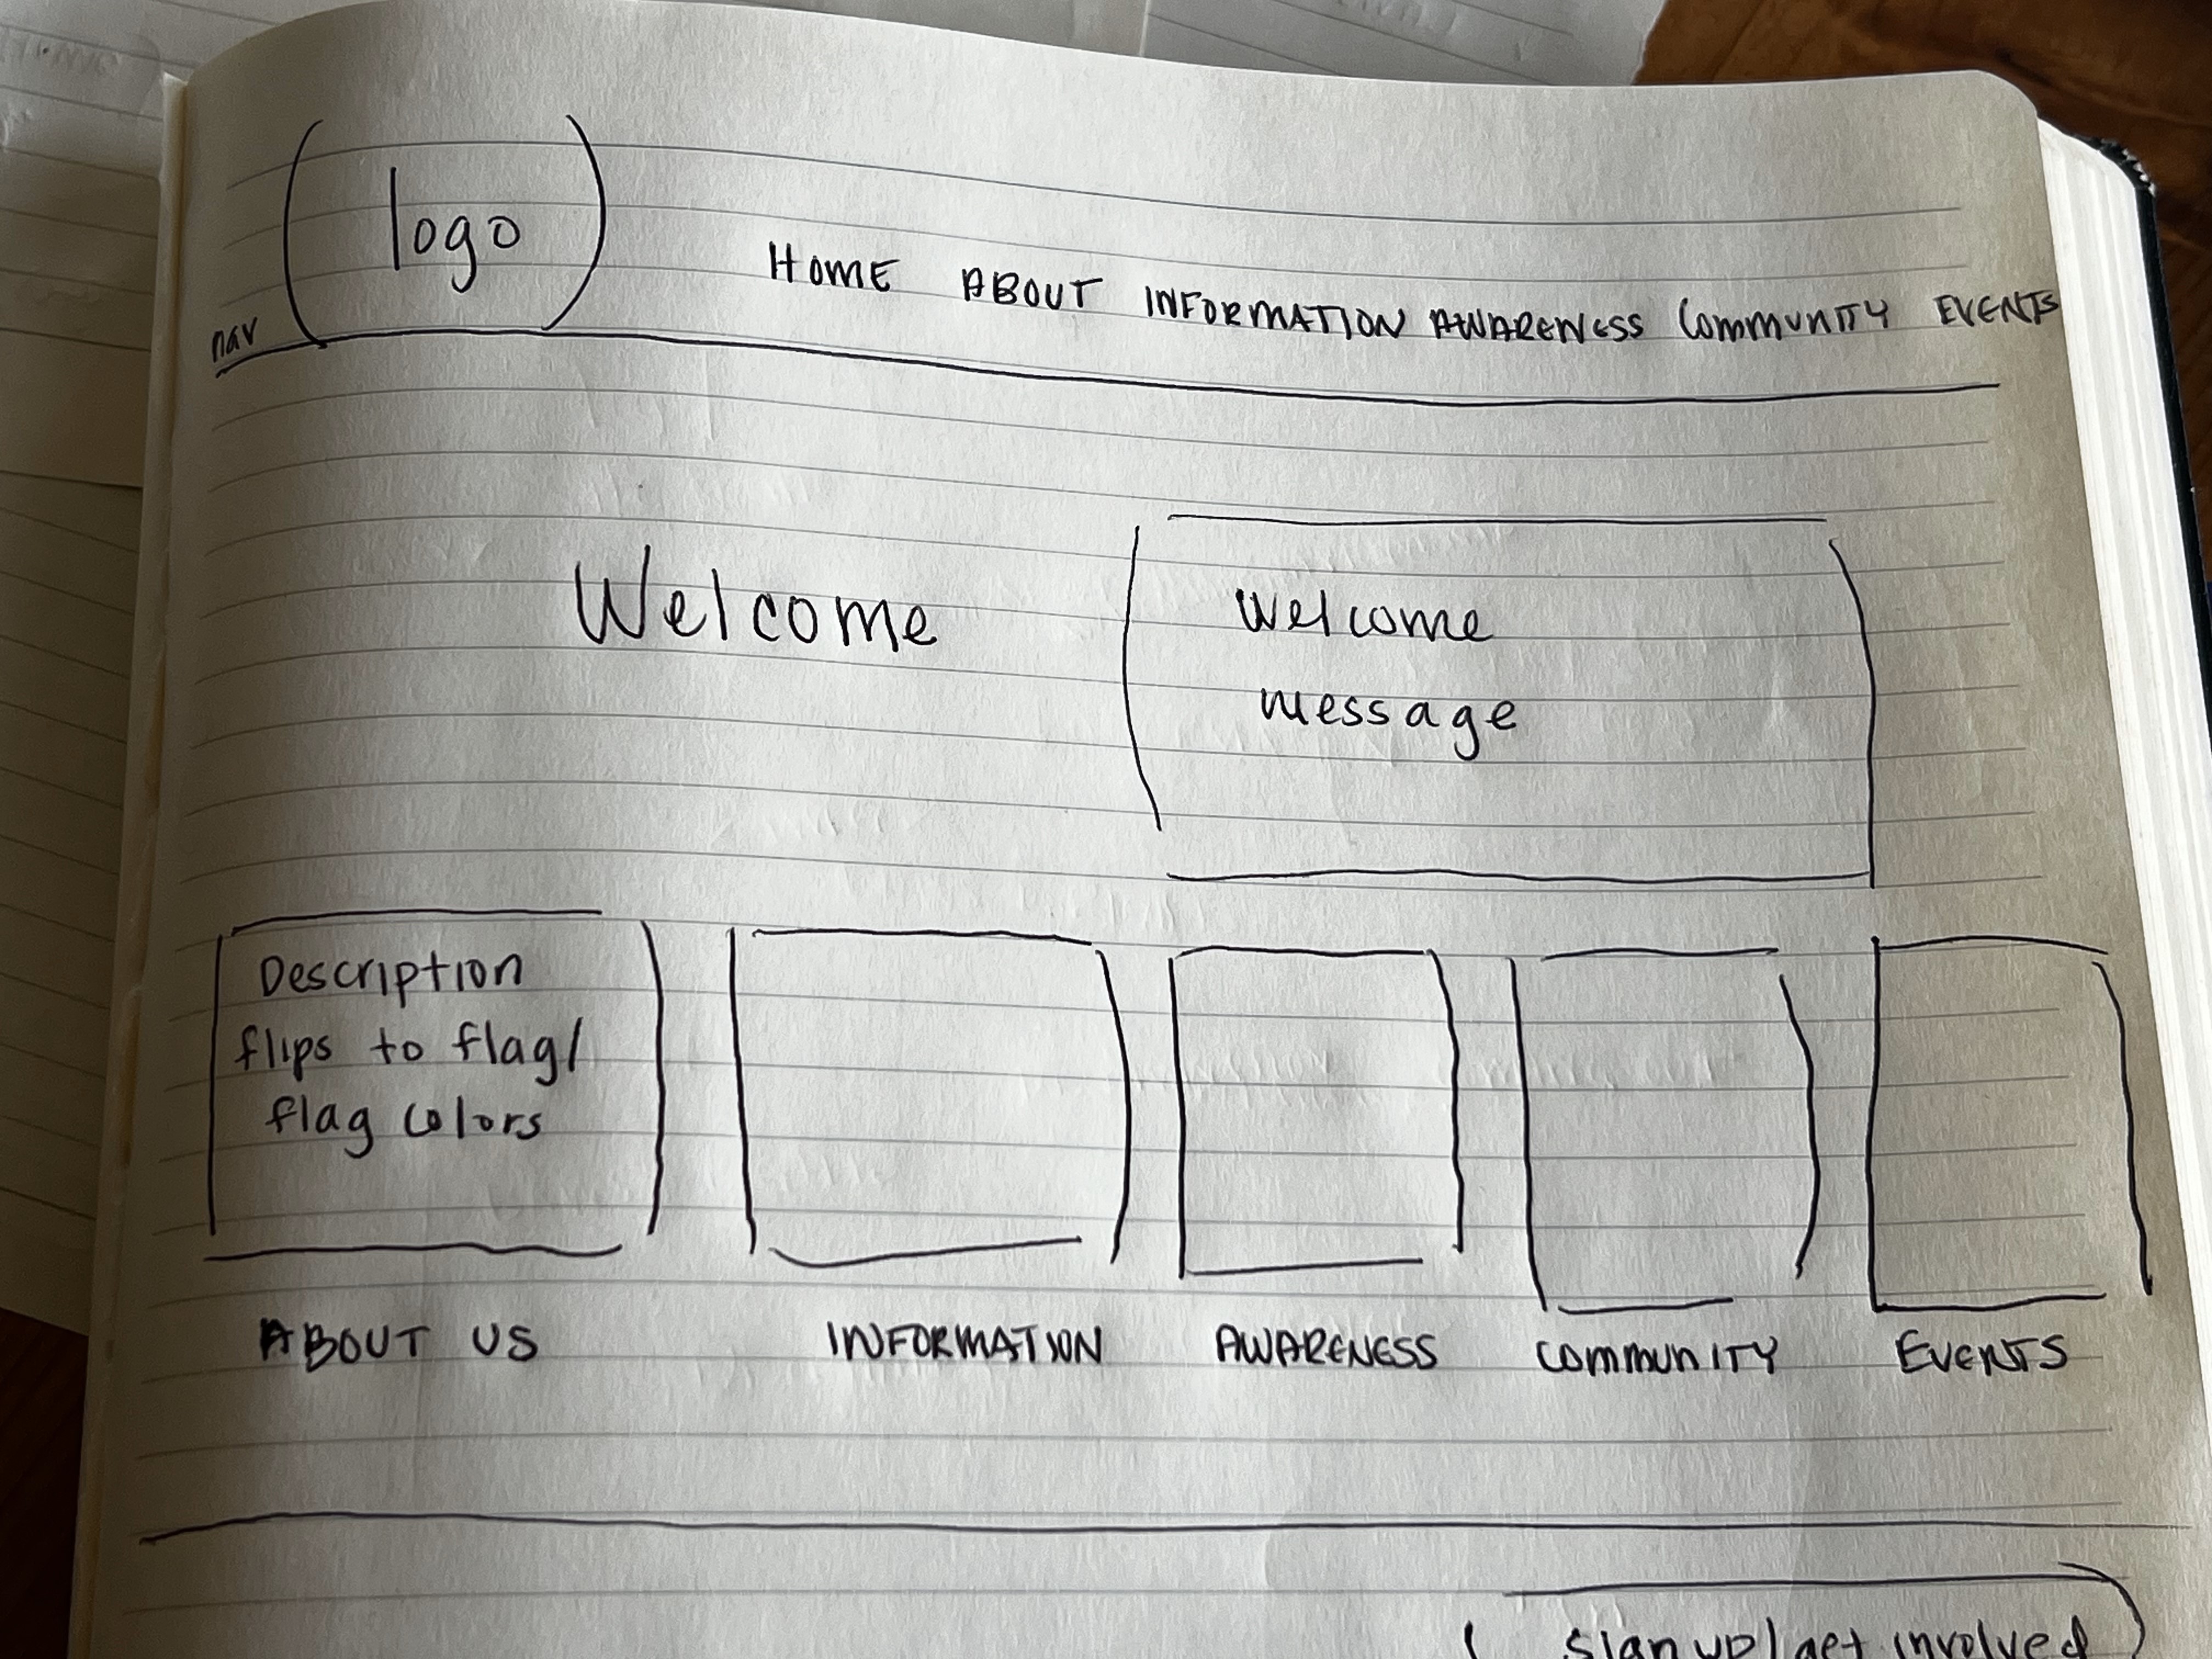 logo
nav
HOME ABOUT INFORMATION AWARENESS COMMUNITY EVENTS
Welcome
Welcome
message
Description
flips to flag/
flag colors
ABOUT US
INFORMATION
AWARENESS
COMMUNITY
EVENTS
sign up/get involved